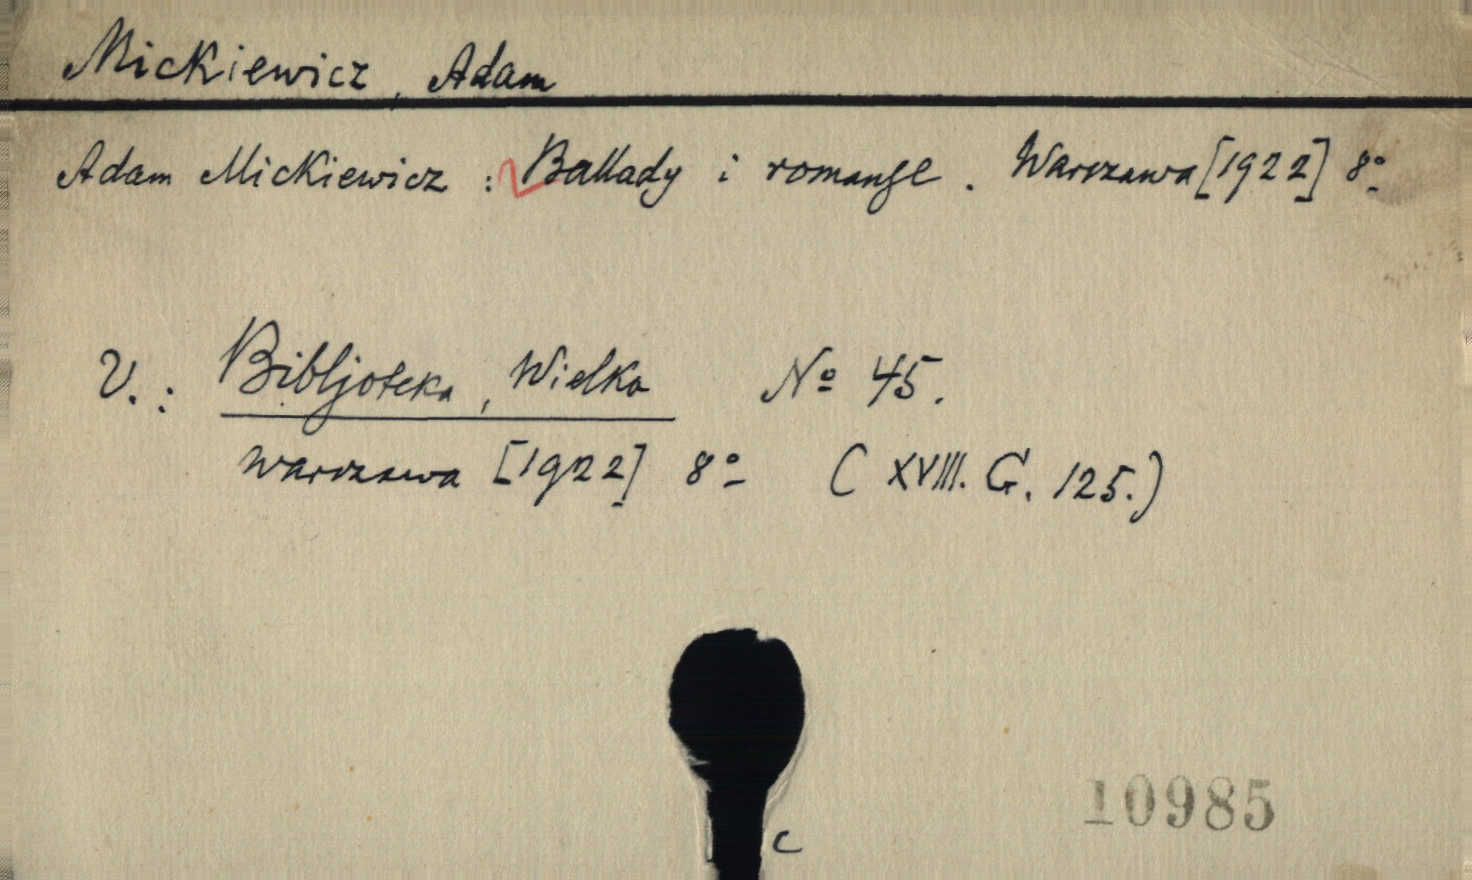 Mickiewicz, Adam
Adam Mickiewicz : Ballady i romanse. Warszawa [1922] 8º
V. : Bibljoteka, Wielka Nº 45.
Warszawa [1922] 8º (XVIII. G. 125.)
10985
C